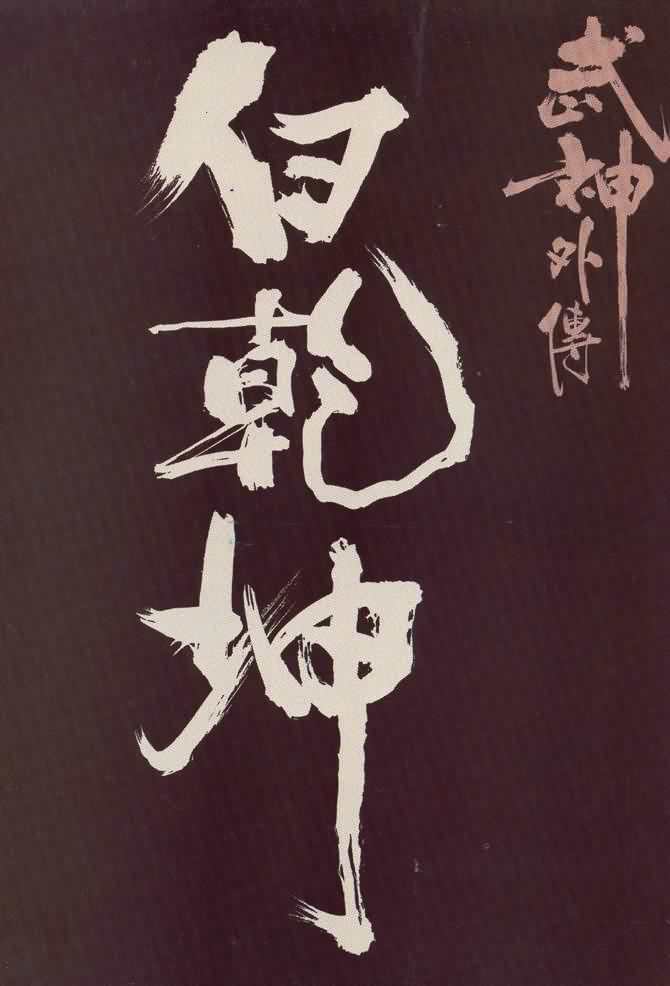 武神外傳
白乾坤